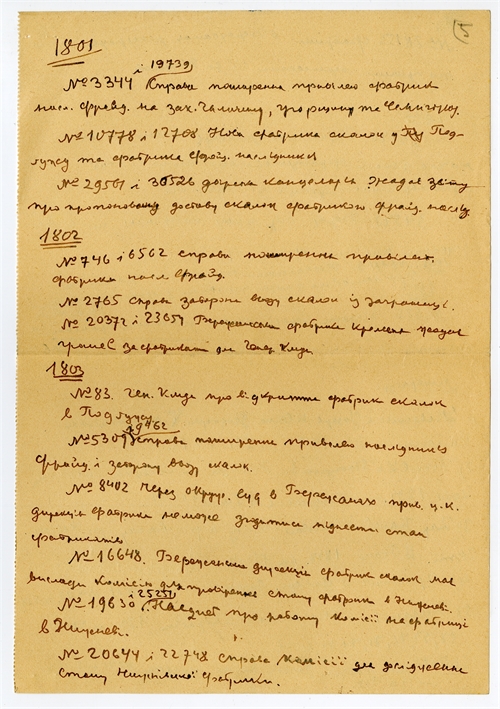 5
1801
і 19739
№ 3344 Справа поширення привілею фабрик
насл. Фрайд. на зах. Галичину, Угорщину та Семигород.
№ 10778 і 12708 Нова фабрика скалок у Под-
гужу та фабрика Фрайд. наслідники
№ 29501 і 30526 дирекц. канцелярія жадає звіту
про пропоновану доставу скалок фабрикою Фрайд. наслід.
1802
№ 746 і 6562 справа поширення привілею
фабрики насл Фрайд.
№ 2765 справа заборони ввозу скалок із заграниці.
№ 20372 і 23654 Бережанська фабрика кременя
грошей за фабрикати для Ген. Кмди
1803
№ 83. Ген. Кмда про відкриття фабрик скалок
в Подгужу
19462
№ 5309 справа поширення привілею наслідників
Фрайд. і заборону ввозу скалок.
№ 8402 Через окруж. суд в Бережанах прив. ц.к.
дирекція фабрики не може піднести стан
фабрикатів
№ 16648. Бережанська дирекція фабрик скалок має
вислати комісію для провірення стану фабрики в Нижневі.
і 25251
№ 19630 про роботу комісії на фабриці
в Нижневі.
№ 20644 і 22748 справа комісії для дослідження
стану Нижнівської фабрики.